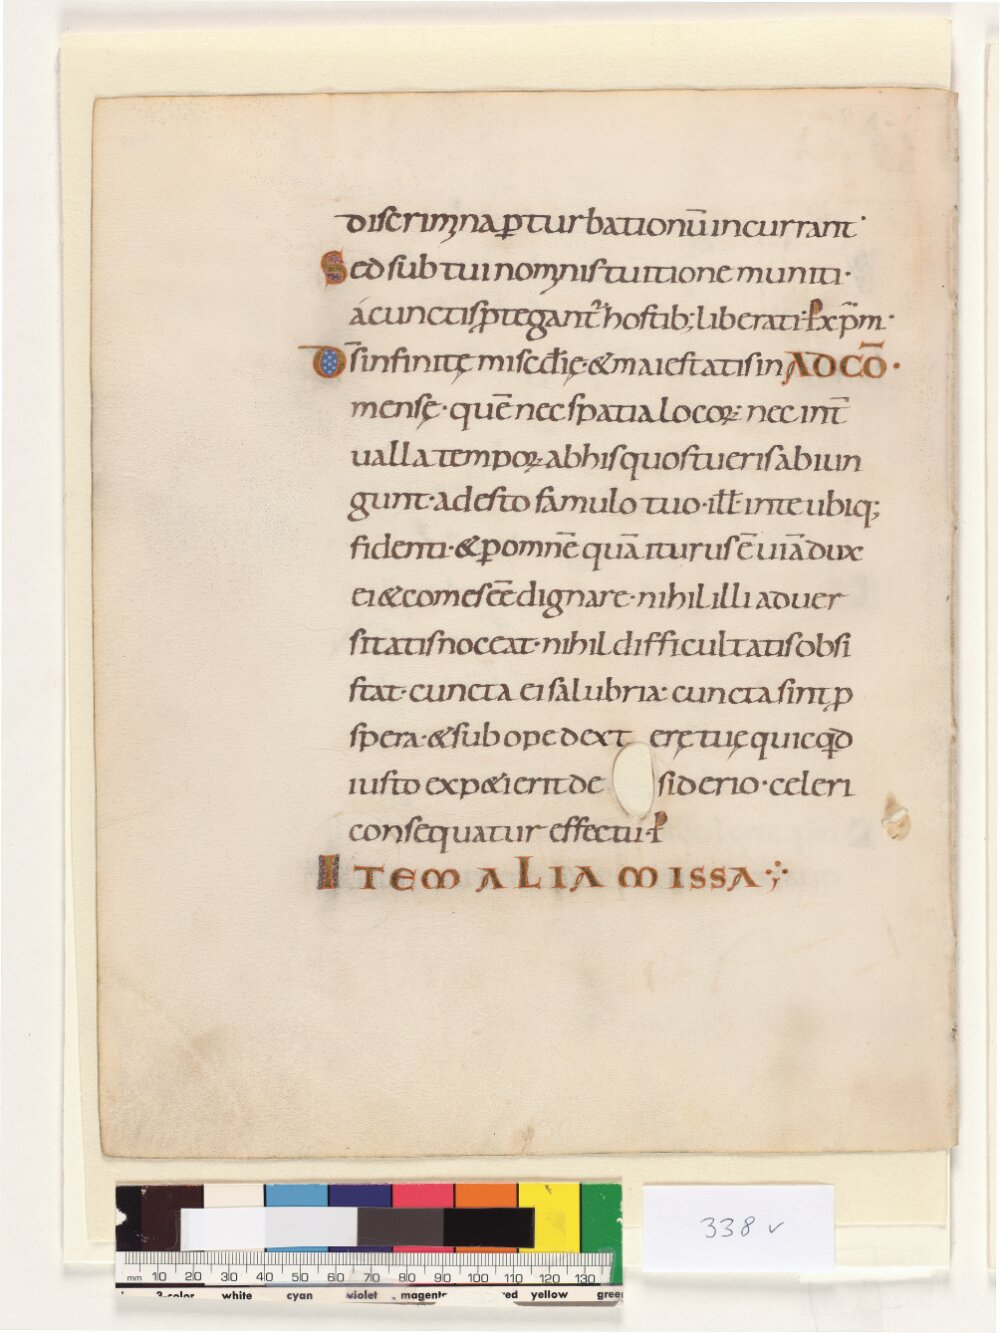 discrimina ꝑturbationū incurrant·
Sed sub tui nominis tuitione muniti·
á cunctis ptegant᷑ hostib; liberati· ꝑ xp̄m·
D̄s infinitę misc̄dię· & maiestatis in AD CŌ·
mensę· quē nec spatia locoꝝ· nec int̄
ualla tempoꝝ ab his quos tueris abiun
gunt· adesto famulo tuo· ill̄· in te ubiq;
fidenti· & ꝑ omnē quā iturus ē uiā dux
ei & comes eē dignare· nihil illi aduer
sitatis noceat· nihil difficultatis obsi
stat· cuncta ei salubria· cuncta sint p
spera· & sub ope dexterę tuę quicqd
iusto exp&ierit desiderio· celeri
consequatur effectu· ꝑ
ITEM ALIA MISSA
338 v
mm 10 20 30 40 50 60 70 80 90 100 110 120 130
3-color white cyan violet magenta red yellow green